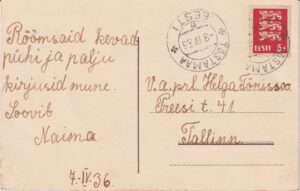 Rõõmsaid kevad
pühi ja palju
kirjusid mune.
Soovib
Naima.
7.IV 36.
TÕSTAMAA
EESTI
-8 IV 36
EESTI 5 s
V. a. prl. Helga Tõnisson
Preesi t. 41
Tallinn